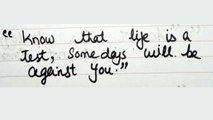 “ Know that life is a
Test, Some days will be
against you.”